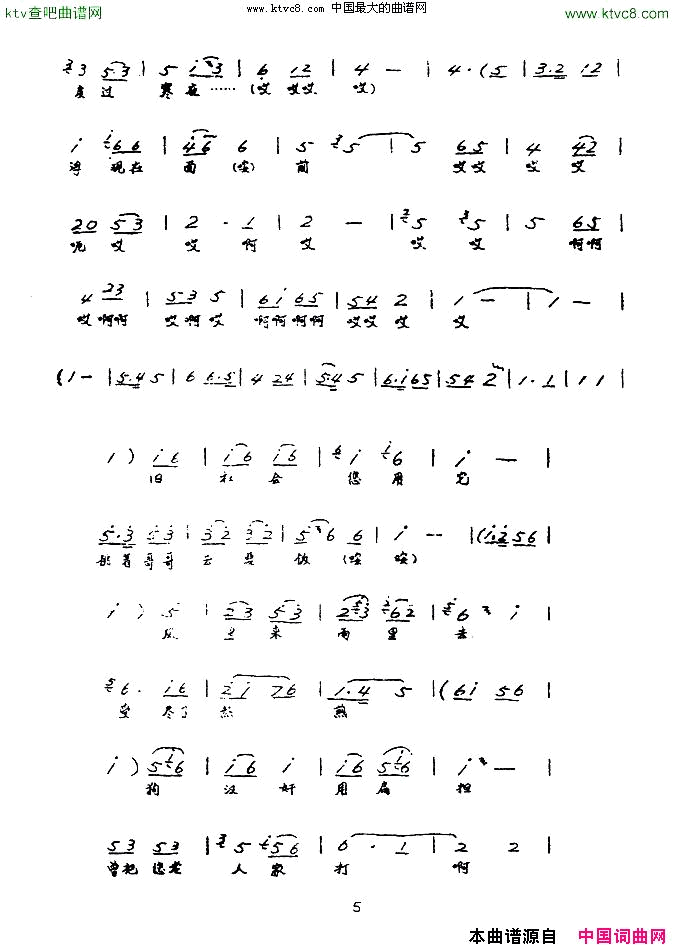 ktv查吧曲谱网 www.ktvc8.com 中国最大的曲谱网 www.ktvc8.com
3 3 5·3 | 5 i 3 | 6 i2 | 4 — | 4·(5 | 3·2 i2 |
度过 寒夜……(哎 哎哎 哎)
i i66 | 46 6 | 5 35 | 5 65 | 4 42 |
浮现在 面(唉)前 哎哎 哎 哎
20 53 | 2 · 1 | 2 — | 35 35 | 5 65 |
呃哎 哎 啊 哎 哎 哎 啊啊
4 23 | 53 5 | 6i 65 | 54 2 | 1 — | 1 — |
哎啊啊 哎啊哎 啊啊啊啊 哎哎哎 哎
(1— | 5·4 5 | 6 6·5 | 4 24 | 54 5 | 6·i65 | 54 2 | 1·1 | 1 1 |
1) i6 | i6 i6 | 6i i6 | i — |
旧 社会 您用 它
5·3 53 | 32 32 | 5 6 6 | i -- | (i·2 56 |
哥哥 去 饭 (唉 唉)
i) 5 | 23 53 | 2 3 62 | 56 3 i |
风里来 雨里去
56· i6 | 2i 76 | 1·4 5 | (6i 56 |
受尽了 熬 煎
i) 5i6 | i6 i | i6 5i6 | i — |
狗 汉奸 用扁 担
53 53 | 35 i56 | 6 · 1 | 2 2 |
曾把您老 人家 打 啊
5
本曲谱源自 中国词曲网